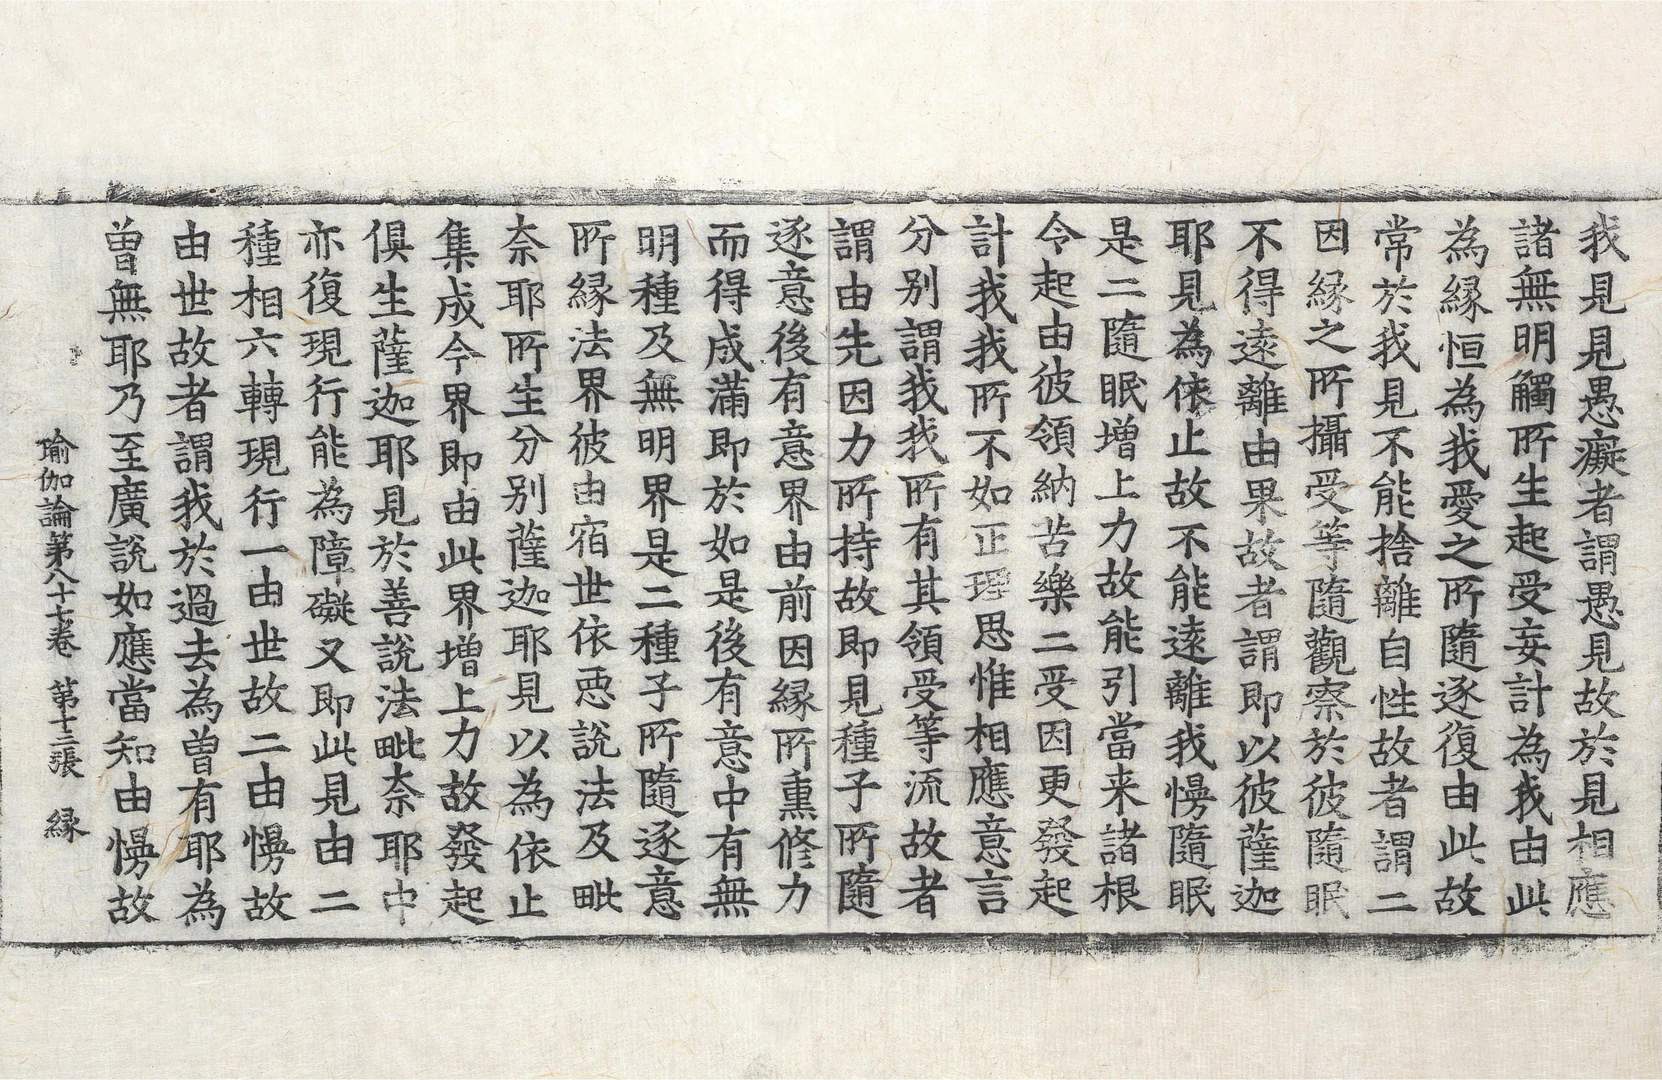 我見見愚癡者謂愚見故於見相應
諸無明觸所生起受妄計為我由此
為緣恒為我愛之所隨逐復由此故
常於我見不能捨離自性故者謂二
因緣之所攝受等隨觀察於彼隨眠
不得遠離由果故者謂即以彼薩迦
耶見為依止故不能遠離我慢隨眠
是二隨眠增上力故能引當来諸根
令起由彼領納苦樂二受因更發起
計我我所不如正理思惟相應意言
分別謂我我所有其領受等流故者
謂由先因力所持故即見種子所隨
逐意後有意界由前因緣所熏修力
而得成滿即於如是後有意中有無
明種及無明界是二種子所隨逐意
所緣法界彼由宿世依惡說法及毗
奈耶所生分別薩迦耶見以為依止
集成今界即由此界增上力故發起
俱生薩迦耶見於善說法毗奈耶中
亦復現行能為障礙又即此見由二
種相六轉現行一由世故二由慢故
由世故者謂我於過去為曾有耶為
曾無耶乃至廣說如應當知由慢故
瑜伽論第八十七卷 第十三張 緣